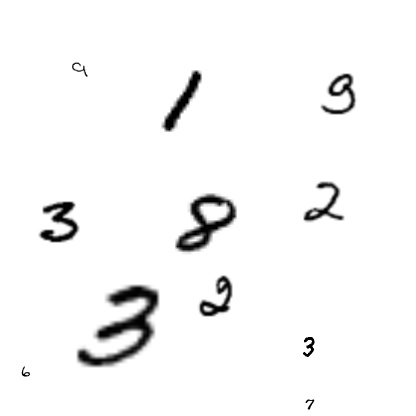 9 1 9
3 8 2
3 2
3
6
7